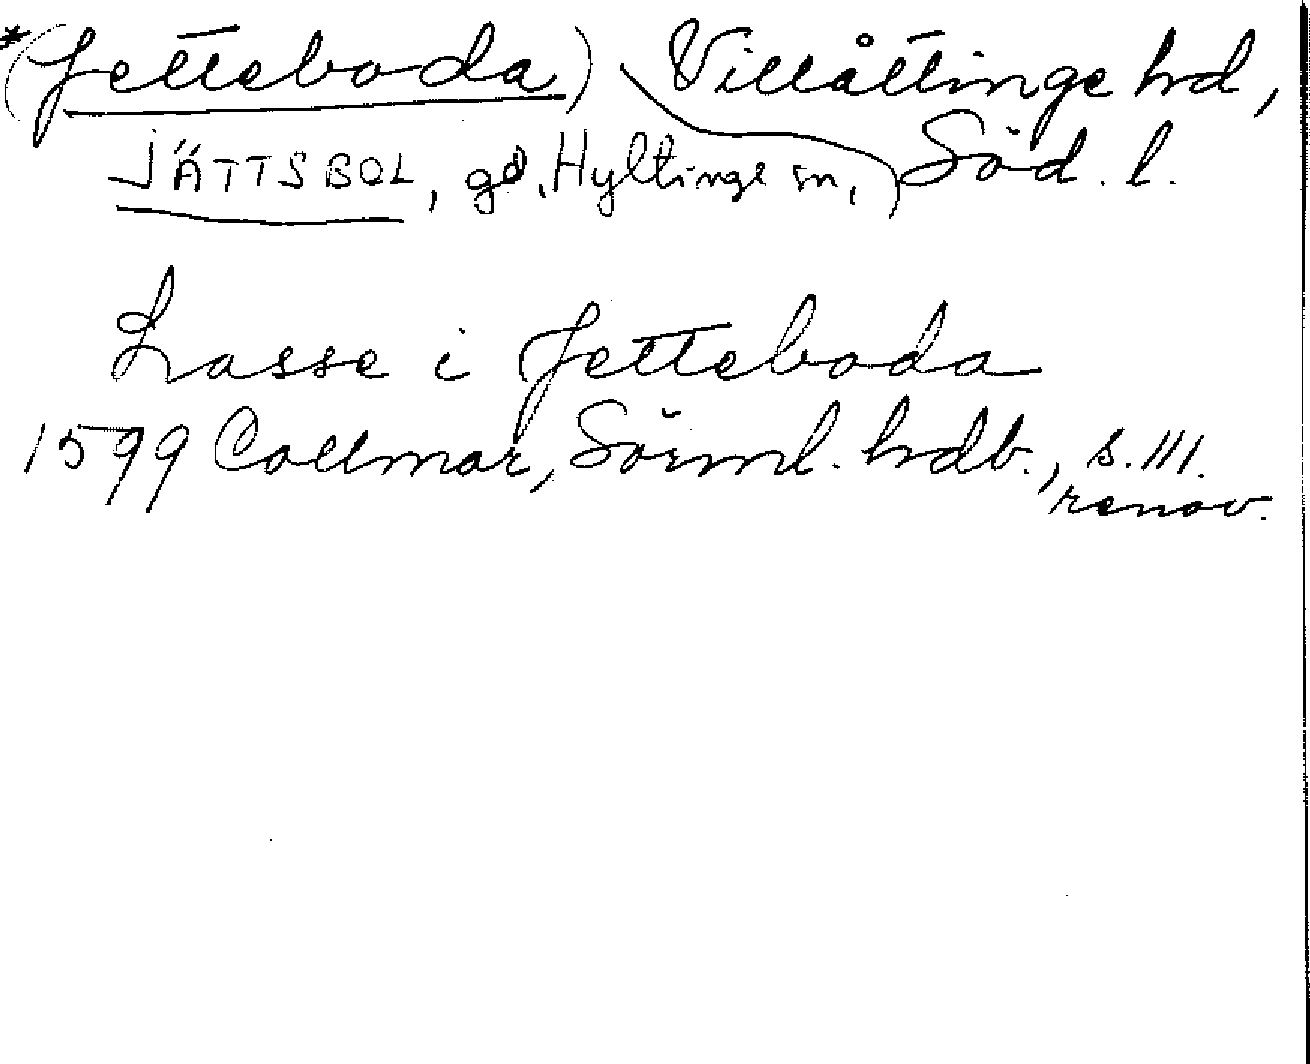 *(Jetteboda) Villåttinge hd,
JÄTTSBOL, gd, Hyltinge sn, Söd. l.
Lasse i Jetteboda
1599 Collmar, Sörml. hdb., s. 111.
renov.